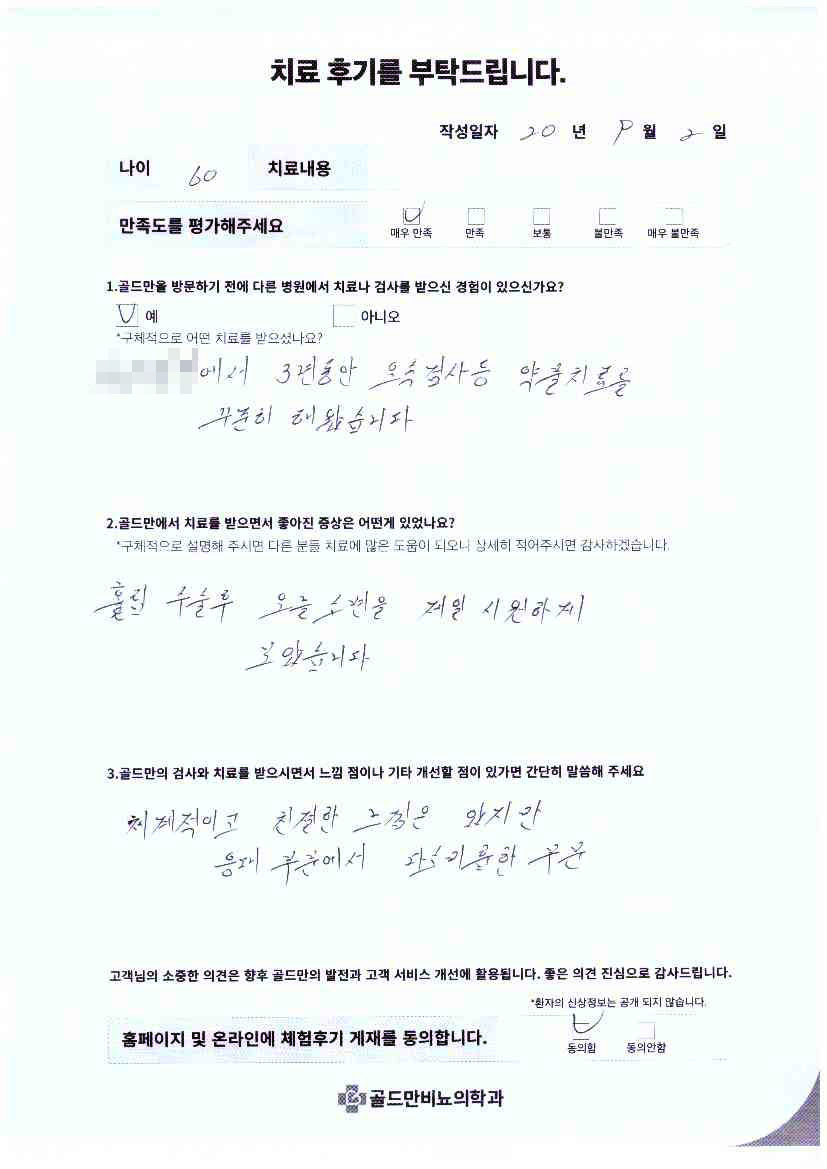 치료 후기를 부탁드립니다.
작성일자 20 년 9 월 2 일
나이 60 치료내용
만족도를 평가해주세요
매우 만족 만족 보통 불만족 매우 불만족
1.골드만을 방문하기 전에 다른 병원에서 치료나 검사를 받으신 경험이 있으신가요?
예 아니오
*구체적으로 어떤 치료를 받으셨나요?
에서 3년동안 요속검사등 약물치료를
꾸준히 해왔습니다
2.골드만에서 치료를 받으면서 좋아진 증상은 어떤게 있었나요?
*구체적으로 설명해 주시면 다른 분들 치료에 많은 도움이 되오니 상세히 적어주시면 감사하겠습니다.
홀립 수술후 오늘 소변을 제일 시원하게
보았습니다
3.골드만의 검사와 치료를 받으시면서 느낌 점이나 기타 개선할 점이 있가면 간단히 말씀해 주세요
체계적이고 친절한 느낌은 받지만
응대 부분에서 다소 미흡한 부분
고객님의 소중한 의견은 향후 골드만의 발전과 고객 서비스 개선에 활용됩니다. 좋은 의견 진심으로 감사드립니다.
*환자의 신상정보는 공개 되지 않습니다.
홈페이지 및 온라인에 체험후기 게재를 동의합니다.
동의함 동의안함
골드만비뇨의학과